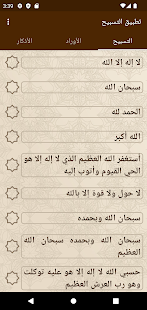 3:39
تطبيق التسبيح
التسبيح
الأوراد
الأذكار
لا إله إلا الله
سبحان الله
الحمد لله
الله أكبر
أستغفر الله العظيم الذي لا إله إلا هو
الحي القيوم وأتوب إليه
لا حول ولا قوة إلا بالله
سبحان الله وبحمده
سبحان الله وبحمده سبحان الله
العظيم
حسبي الله لا إله إلا هو عليه توكلت
وهو رب العرش العظيم